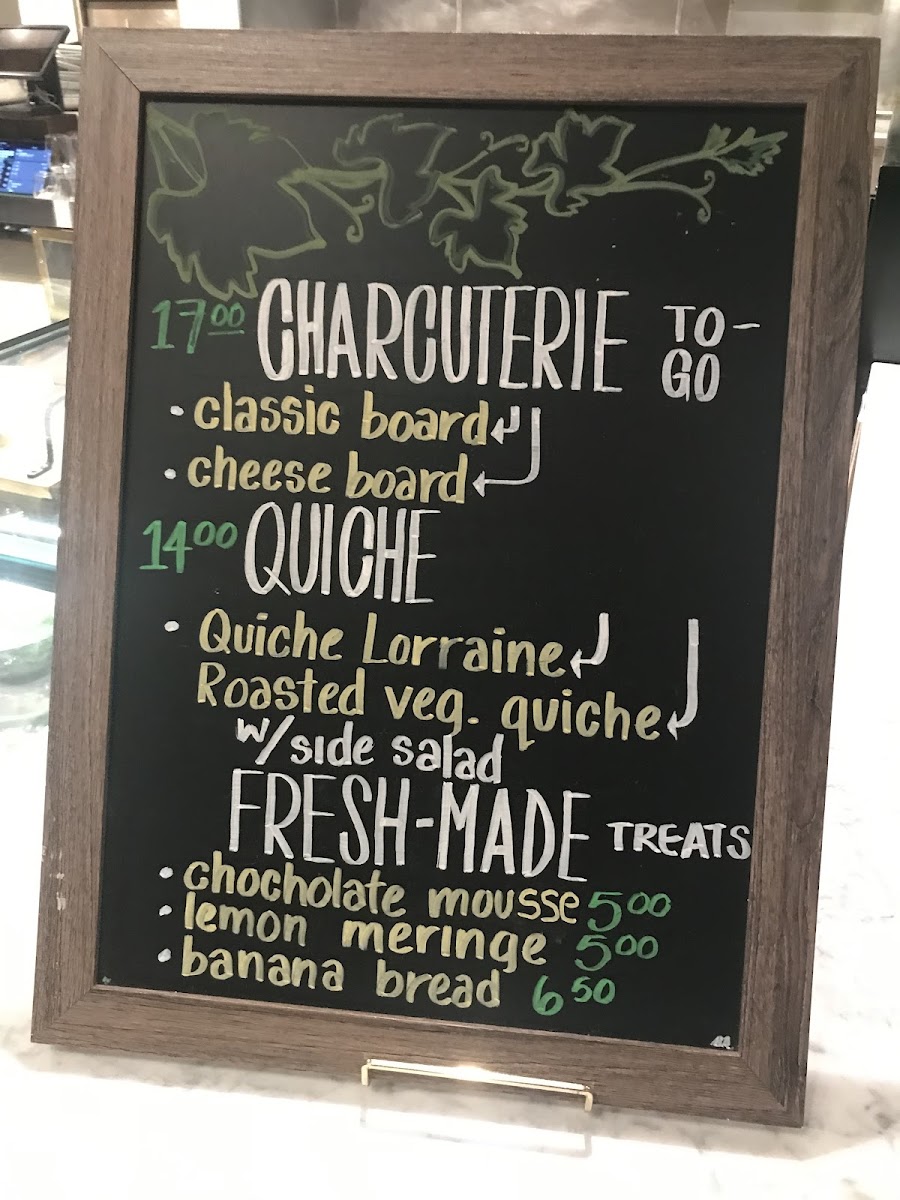 17.00 CHARCUTERIE TO-GO
• classic board
• cheese board
14.00 QUICHE
• Quiche Lorraine
Roasted veg. quiche
w/side salad
FRESH-MADE TREATS
• chocholate mousse 5.00
• lemon meringe 5.00
• banana bread 6.50